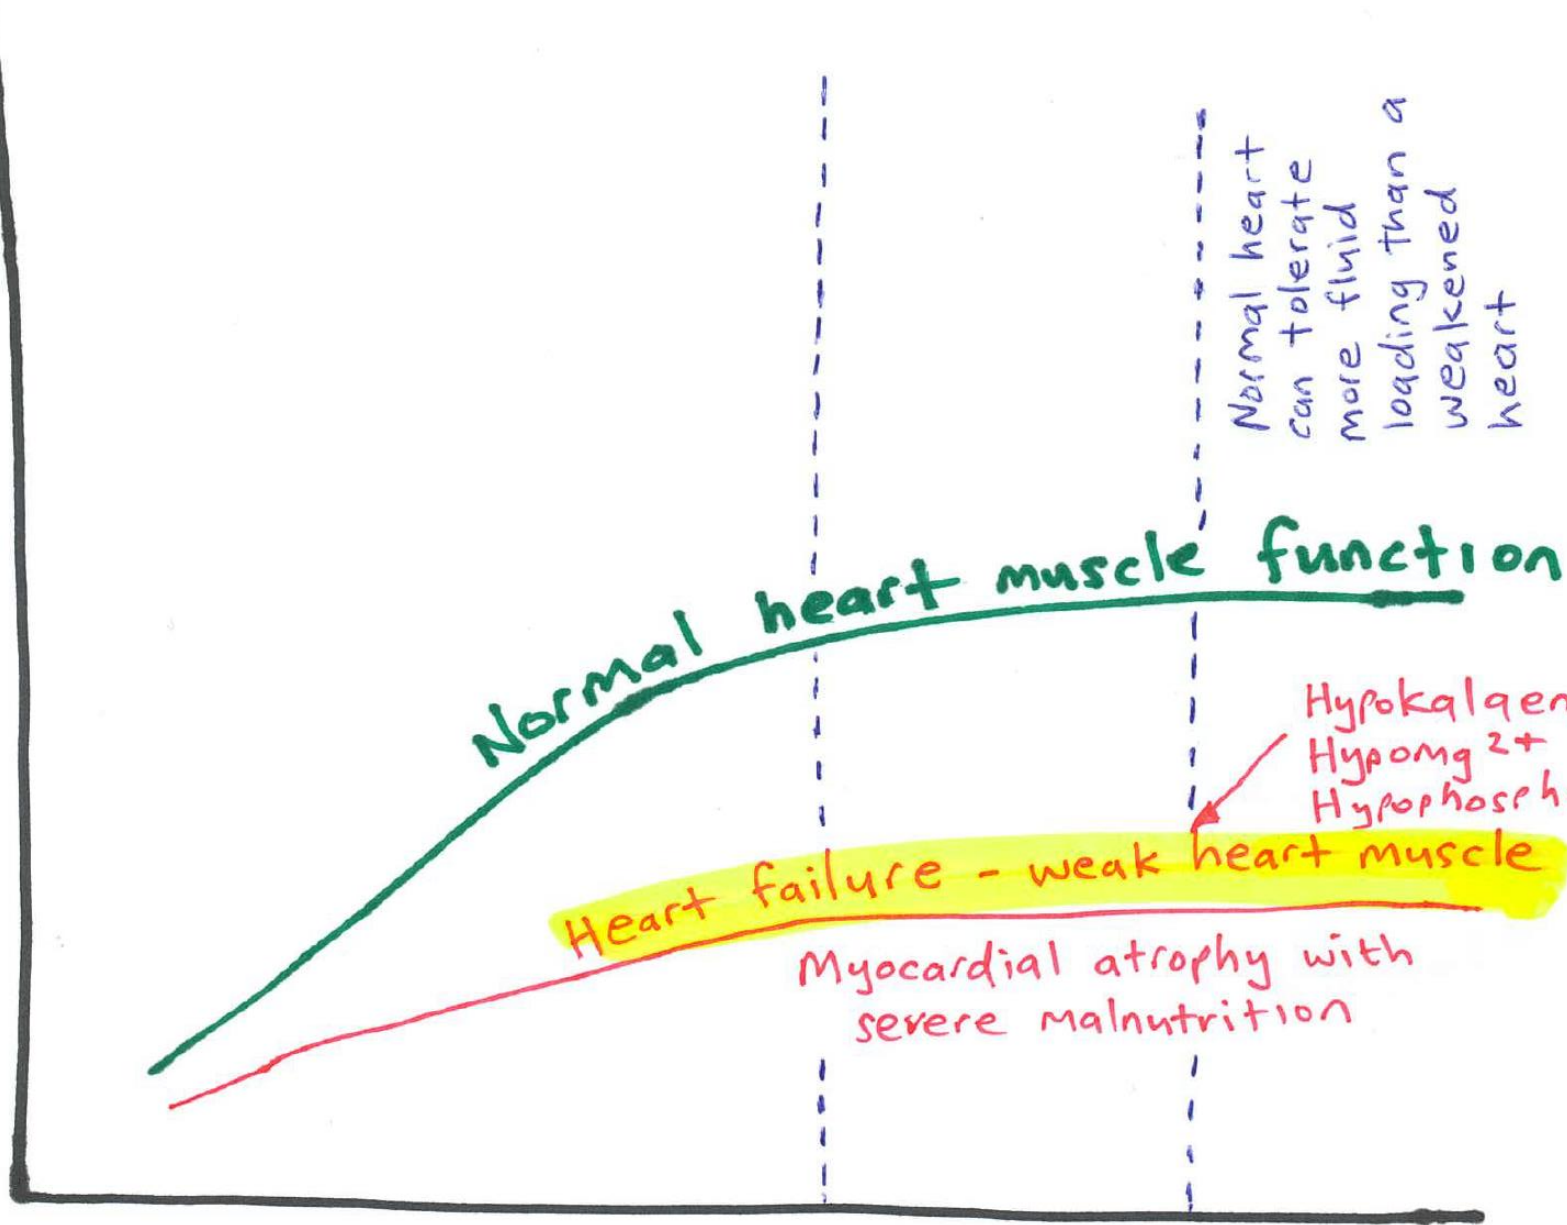 Normal heart
can tolerate
more fluid
loading than a
weakened
heart
Normal heart muscle function
Hypokalaen
Hypomg 2+
Hypophosph
Heart failure - weak heart muscle
Myocardial atrophy with
severe malnutrition